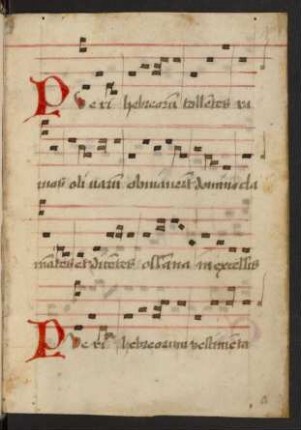 Pueri hebreorũ tollẽtes ra
mos oli uarũ obuiauerũt domino cla
mãtes et dicẽtes ossana in excelsis
Pueri hebreorum vestimẽta